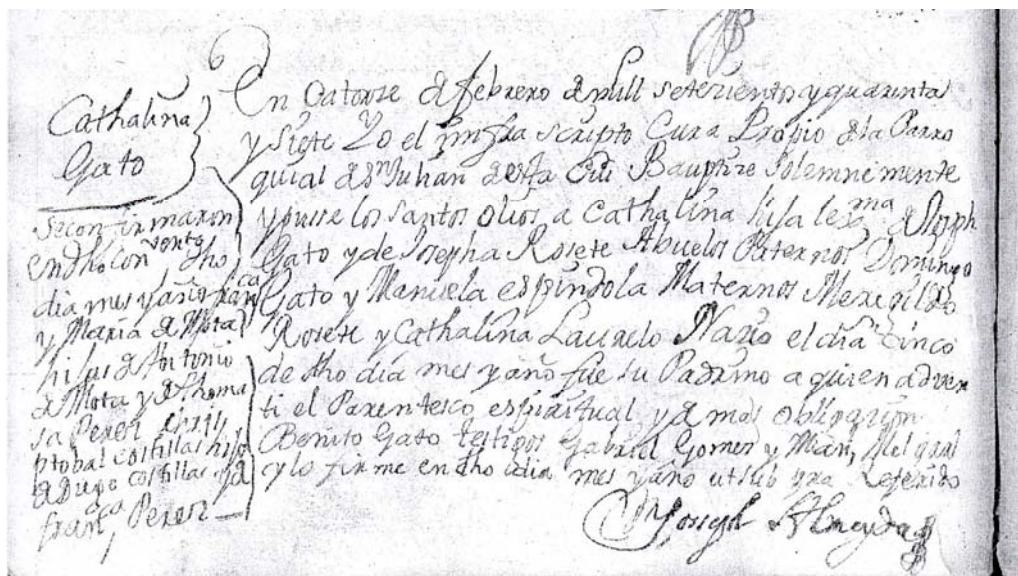 Cathalina
Gato
Se confirmaron
en dho convento dho
dia mes y año franca
y Maria de Mota
hijas de Antonio
de Mota y de Thoma
sa Perez chris
ptobal costillas hijo
de Diego costillas y de
franca Perez
En Catorze de febrero de mill setezientos y quarinta
y Siete Yo el infra scripto Cura Propio de la Parro
quial de Sn Julian desta Ciu Bauptize Solemnemente
y puse los santos olios a Cathalina hija lexma de Joseph
Gato y de Josepha Rosete Abuelos Paternos Domingo
Gato y Manuela espindola Maternos Meregildo
Rosete y Cathalina Laurelo Nazio el dia cinco
de dho dia mes y año fue su Padrino a quien adver
ti el Parentesco espiritual y demas obligazion
Benito Gato testigos Gabriel Gomes y Melgral
y lo firme en dho dia mes y año ut sub gra Referido
Joseph Almeyda